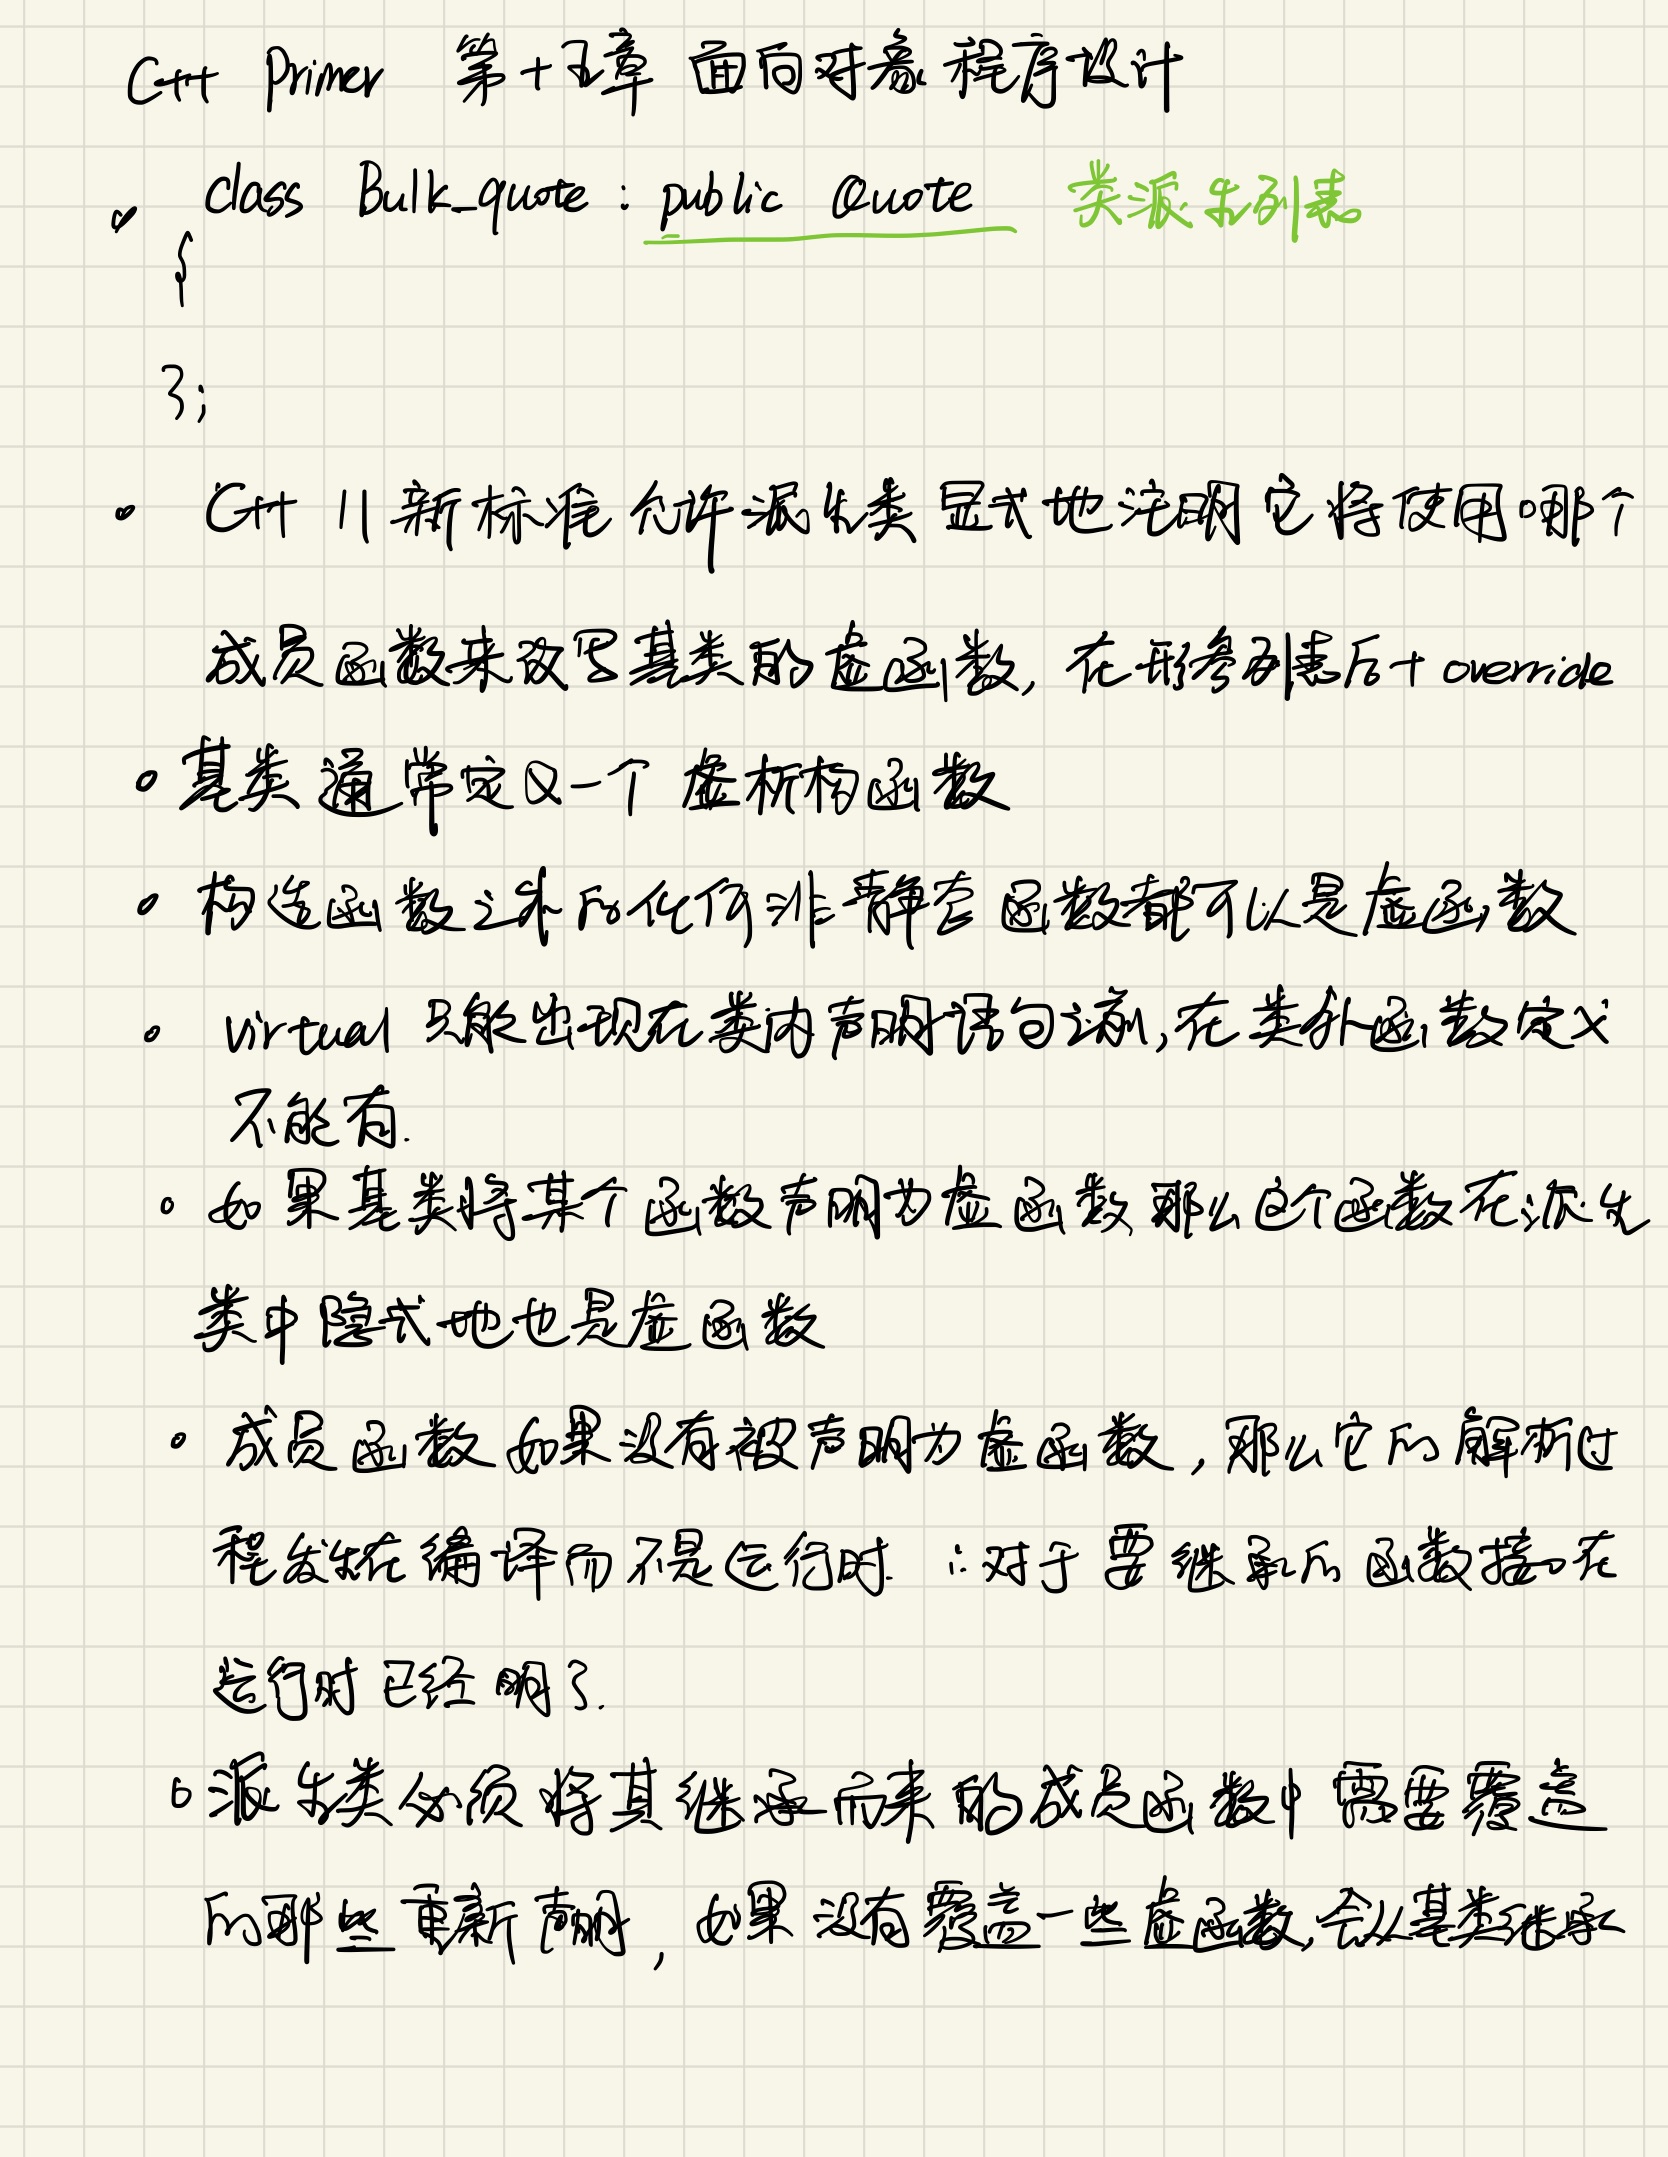 C++ Primer 第十五章 面向对象程序设计
class Bulk_quote : public Quote 类派生列表
{
};
C++ 11 新标准允许派生类显式地注明它将使用哪个
成员函数来改写基类的虚函数, 在形参列表后+ override
基类通常定义一个虚析构函数
构造函数之外的任何非静态函数都可以是虚函数
virtual 只能出现在类内声明语句之前, 在类外函数定义
不能有.
如果基类将某个函数声明为虚函数 那么这个函数在派生
类中隐式地也是虚函数
成员函数如果没有被声明为虚函数, 那么它的解析过
程发生在编译而不是运行时. ∴对于要继承的函数接口在
运行时已经明了.
派生类必须将其继承而来的成员函数中需要覆盖
的那些重新声明, 如果没有覆盖一些虚函数, 会从基类继承